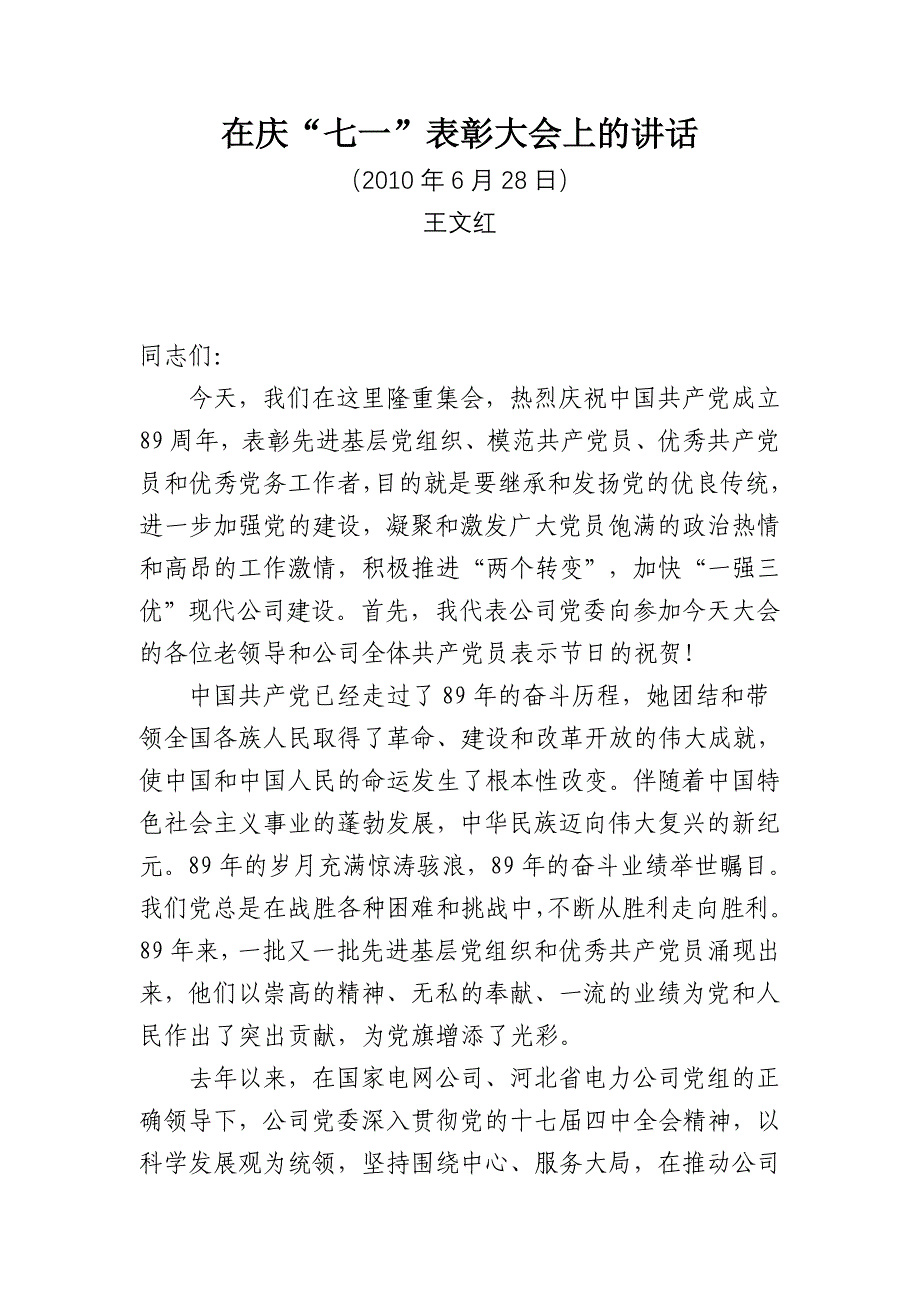 在庆“七一”表彰大会上的讲话
（2010年6月28日）
王文红
同志们：
今天，我们在这里隆重集会，热烈庆祝中国共产党成立
89周年，表彰先进基层党组织、模范共产党员、优秀共产党
员和优秀党务工作者，目的就是要继承和发扬党的优良传统，
进一步加强党的建设，凝聚和激发广大党员饱满的政治热情
和高昂的工作激情，积极推进“两个转变”，加快“一强三
优”现代公司建设。首先，我代表公司党委向参加今天大会
的各位老领导和公司全体共产党员表示节日的祝贺！
中国共产党已经走过了89年的奋斗历程，她团结和带
领全国各族人民取得了革命、建设和改革开放的伟大成就，
使中国和中国人民的命运发生了根本性改变。伴随着中国特
色社会主义事业的蓬勃发展，中华民族迈向伟大复兴的新纪
元。89年的岁月充满惊涛骇浪，89年的奋斗业绩举世瞩目。
我们党总是在战胜各种困难和挑战中，不断从胜利走向胜利。
89年来，一批又一批先进基层党组织和优秀共产党员涌现出
来，他们以崇高的精神、无私的奉献、一流的业绩为党和人
民作出了突出贡献，为党旗增添了光彩。
去年以来，在国家电网公司、河北省电力公司党组的正
确领导下，公司党委深入贯彻党的十七届四中全会精神，以
科学发展观为统领，坚持围绕中心、服务大局，在推动公司